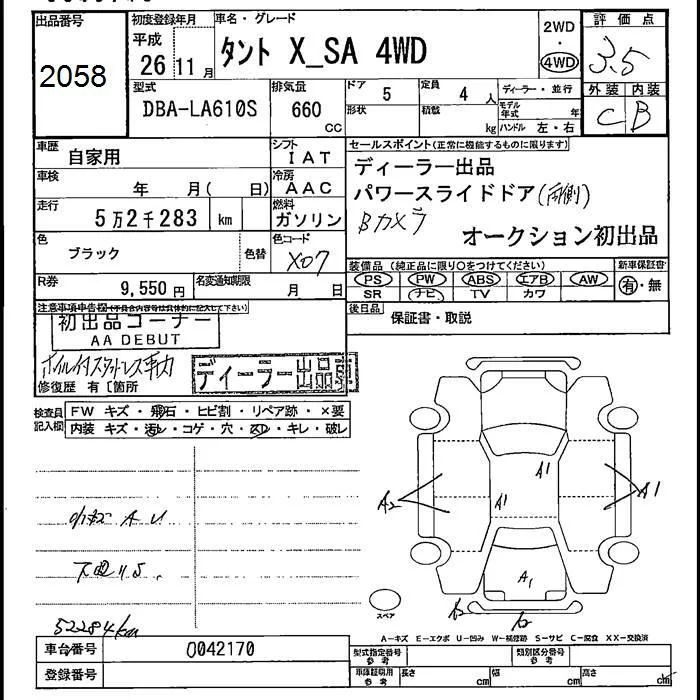 出品番号
2058
初度登録年月
平成
26年11月
車名・グレード
タント X_SA 4WD
2WD
・
4WD
評価点
3.5
外装 内装
C B
型式
DBA-LA610S
排気量
660
cc
ドア
5
形状
定員
4人
積載
kg
ディーラー・並行
モデル年式 年
ハンドル 左・右
車歴
自家用
シフト
IAT
車検
年 月( 日)
冷房
AAC
走行
5万2千283 km
燃料
ガソリン
色
ブラック
色替
色コード
X07
R券
9,550円
名変通知期限
月 日
セールスポイント(正常に機能するものに限ります)
ディーラー出品
パワースライドドア(両側)
Bカメラ
オークション初出品
装備品(純正品に限り○をつけてください)
PS PW ABS エアB AW
SR ナビ TV カワ
新車保証書
有・無
後日品
保証書・取説
注意事項申告欄(不具合内容等は具体的に記入して下さい)
初出品コーナー
AA DEBUT
ホイル付スタットレス車内
ディーラー出品
修復歴 有〔箇所
検査員記入欄
FW キズ・飛石・ヒビ割・リペア跡・×要
内装 キズ・汚レ・コゲ・穴・スレ・キレ・破レ
小キズ A U
下廻りS.
52284km
A1
A1
A2
A1
A1
スペア
A-キズ E-エクボ U-凹み W-補修跡 S-サビ C-腐食 XX-交換済
車台番号
0042170
登録番号
型式指定番号
参考
類別区分番号
参考
車庫証明用
参考
長さ cm
幅 cm
高さ cm